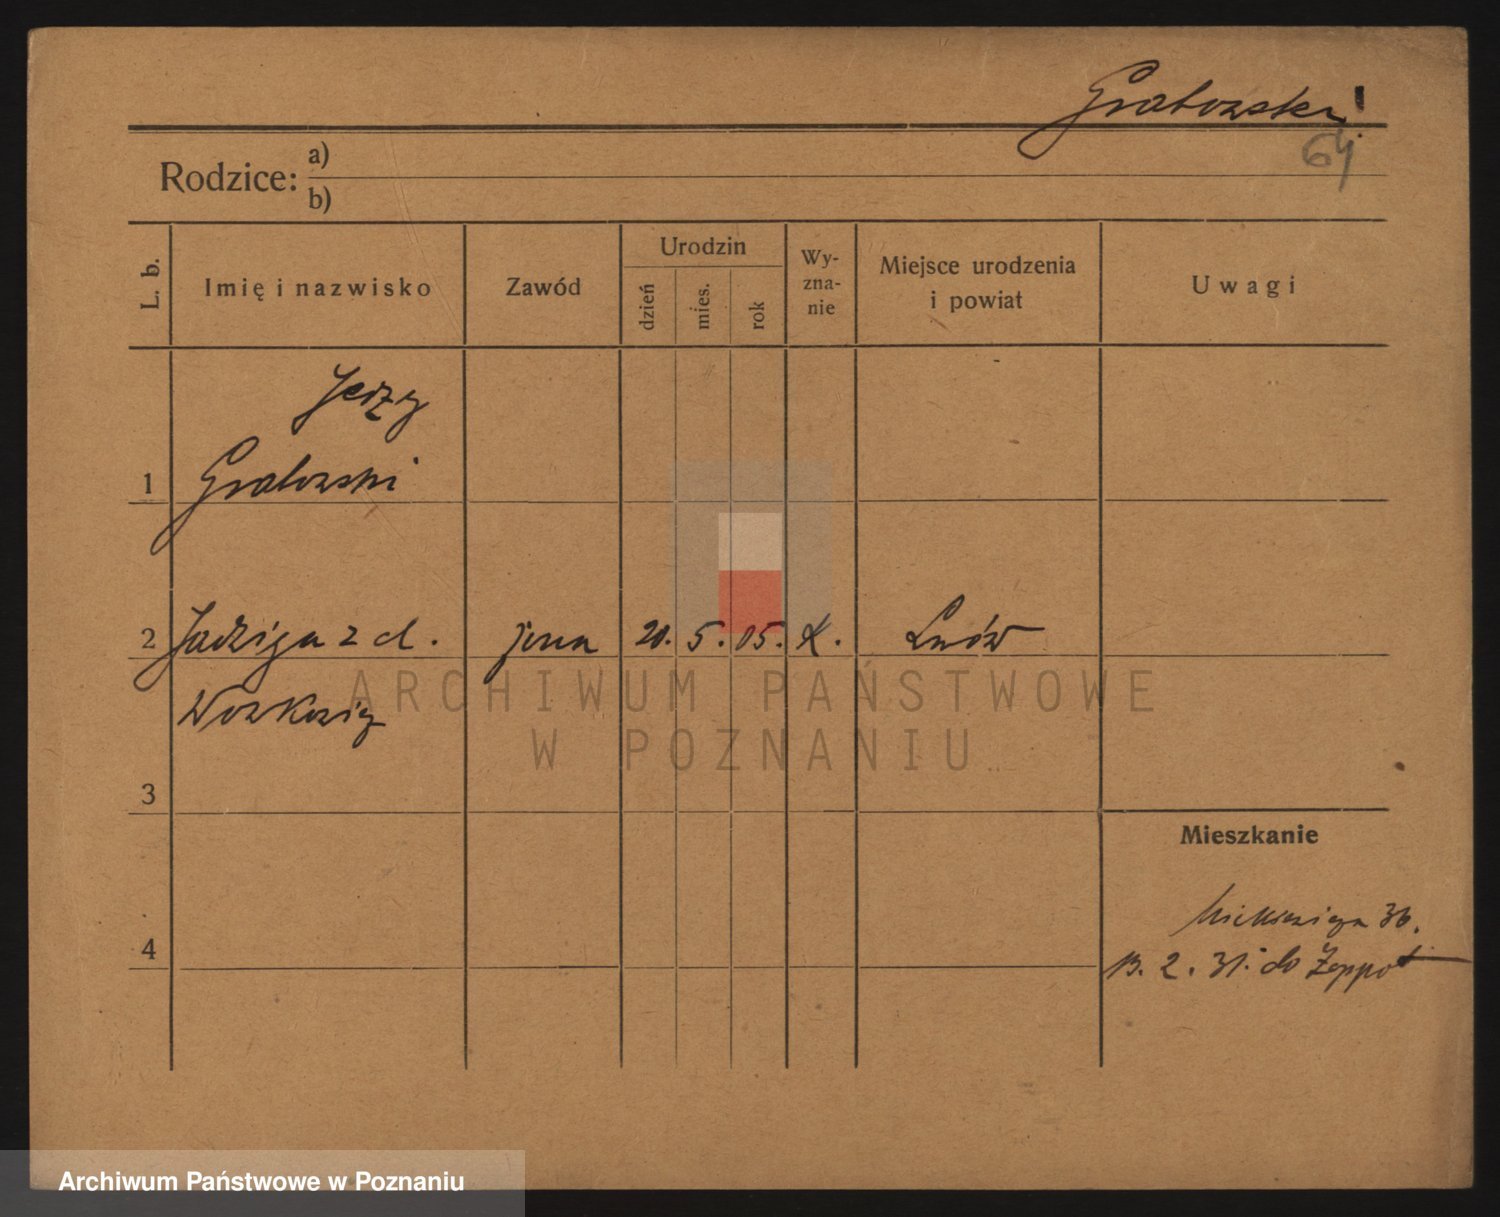 Grabowski
64
Rodzice: a)
b)
L. b. Imię i nazwisko Zawód Urodzin dzień mies. rok Wy-zna-nie Miejsce urodzenia i powiat Uwagi
Jerzy
1 Grabowski
2 Jadwiga z d. żona 20. 5. 05. k. Lwów
3
Mieszkanie
Mickiewicza 36.
4
13. 2. 31. do Zoppot
ARCHIWUM PAŃSTWOWE
W POZNANIU
Archiwum Państwowe w Poznaniu